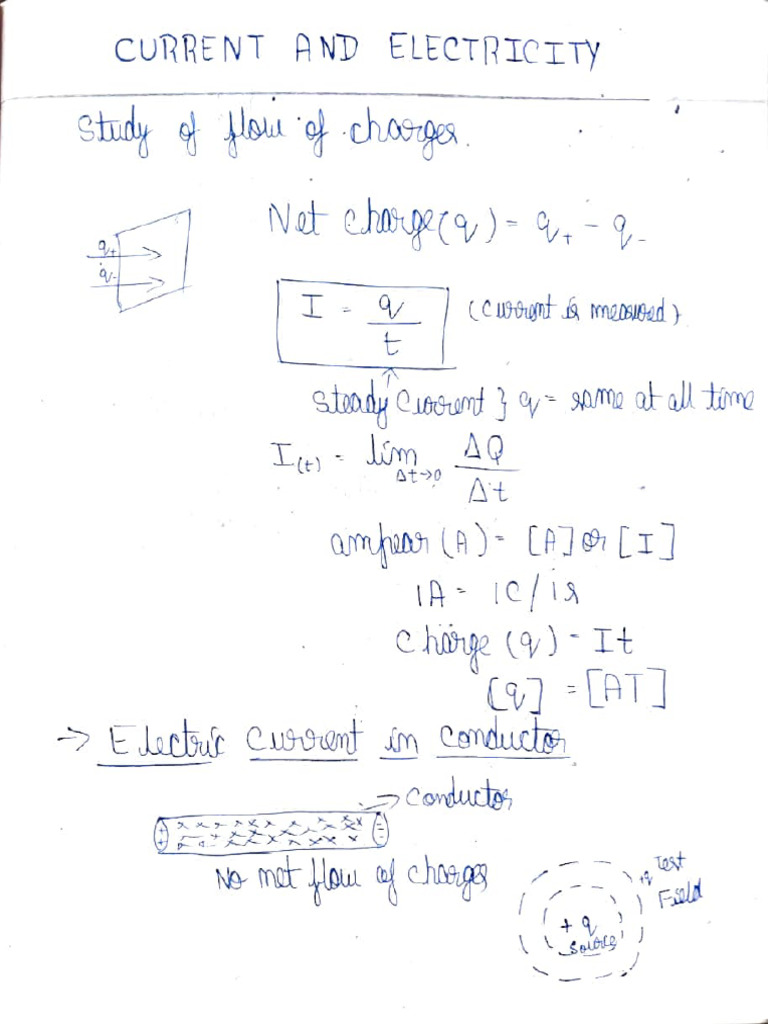 CURRENT AND ELECTRICITY
Study of flow of charges.
Net charge(q) = q₊ - q₋
q₊
q₋
I = q/t (current is measured)
Steady current } q = same at all time
I(t) = lim Δt→0 ΔQ/Δt
ampear (A) = [A] or [I]
1A = 1C/1s
charge (q) = It
[q] = [AT]
→ Electric current in conductor
→ conductor
No net flow of charges
+q Test
Field
+q
source